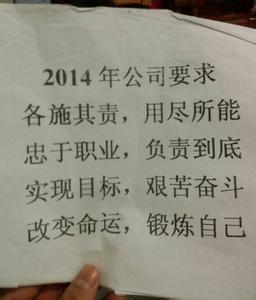 2014年公司要求
各施其责，用尽所能
忠于职业，负责到底
实现目标，艰苦奋斗
改变命运，锻炼自己